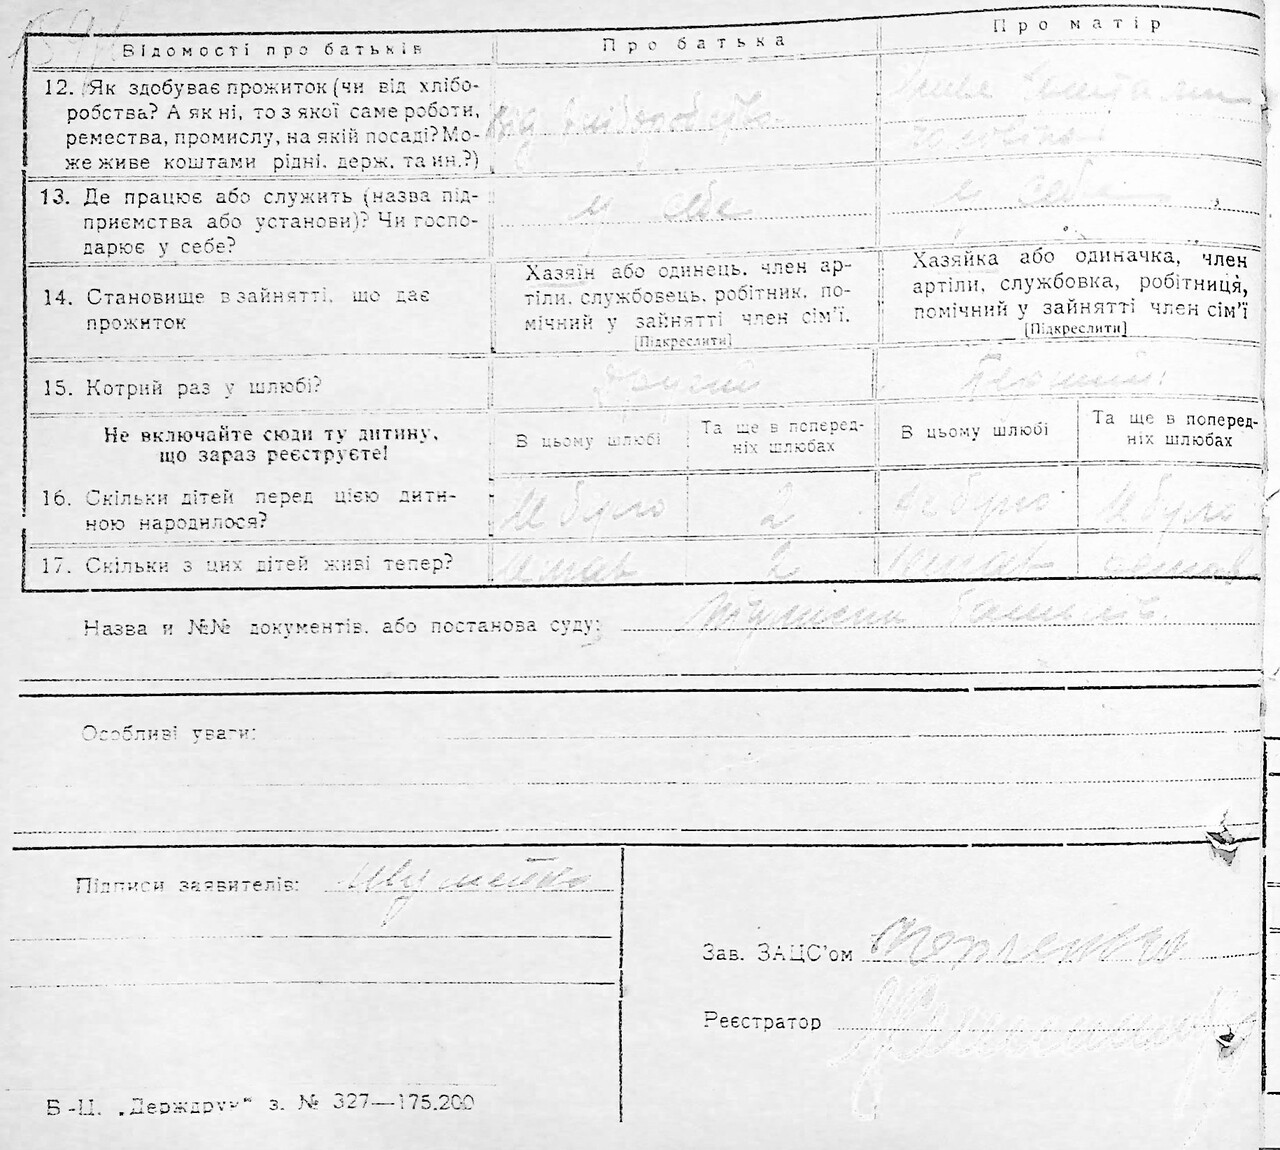 Відомості про батьків
Про батька
Про матір
12. Як здобуває прожиток (чи від хлібо-
робства? А як ні, то з якої саме роботи,
ремества, промислу, на якій посаді? Мо-
же живе коштами рідні, держ. та ин.?)
від хліборобства
13. Де працює або служить (назва під-
приємства або установи)? Чи госпо-
дарює у себе?
у себе
у себе
14. Становище в зайнятті, що дає
прожиток
Хазяїн або одинець, член ар-
тіли, службовець, робітник, по-
мічний у зайнятті член сім'ї.
[Підкреслити]
Хазяйка або одиначка, член
артіли, службовка, робітниця,
помічний у зайнятті член сім'ї
[Підкреслити]
15. Котрий раз у шлюбі?
другий
Перший
Не включайте сюди ту дитину,
що зараз реєструєте!
В цьому шлюбі
Та ще в поперед-
ніх шлюбах
В цьому шлюбі
Та ще в поперед-
ніх шлюбах
16. Скільки дітей перед цією дити-
ною народилося?
не було
2
не було
не було
17. Скільки з цих дітей живі тепер?
немає
2
немає
немає
Назва и №№ документів, або постанова суду:
Особливі уваги:
Підписи заявителів:
Зав. ЗАЦС'ом
Реєстратор
Б-Ц. „Держдрук" з. № 327—175.200